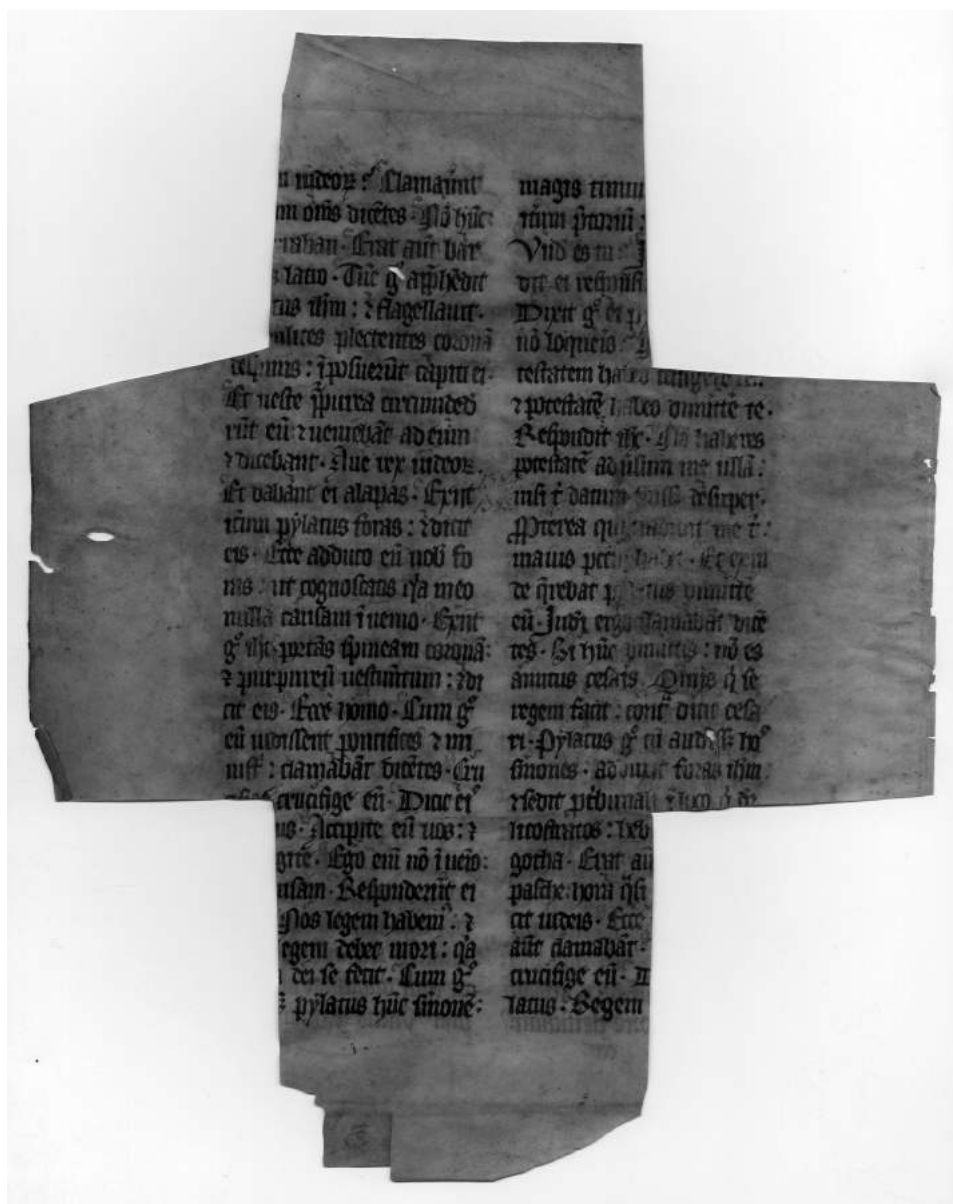 iudeoꝝ : Clamaṽnt
om̄s dicētes · Nō hūc
raban · Erat aūt bar
latro · Tūc gͦ app̄hēdit
tus ih̄m : ⁊ flagellauit ·
milites plectentes coronā
de spinis : īposuerūt capiti eiꝰ
Et ueste p̱purea circūnded
rūt eū ⁊ ueniebāt ad eūm
⁊ dicebant · Aue rex iudeoꝝ ·
Et dabānt ei alapas · Exiit
itum pylatus foras : ⁊ dicit
eis · Ecce adduco eū nob̄ fo
ras : ut cognoscatis q̄a in eo
nullā causam īuenio · Exiit
gͦ ih̄c portās spineam coronā :
⁊ purpureū uestim̄tum : ⁊ di
cit eis · Ecce homo · Cum gͦ
eū uidissent pontifices ⁊ mi
nist̄ : clamabāt dicētes · Cru
crucifige eū · Dicit eiˢ
us · Accipite eū uos : ⁊
gite · Ego eni nō īuēio :
usam · Responderūt ei
Nos legem habemꝰ : ⁊
legem debet mori : q̄a
dei se fecit · Cum gͦ
pylatus hūc s̄monē :
magis timu
itūm p̄toriū :
Vnd̄ es tu :
dit ei respōns
Dixit gͦ ei p
nō loqueris :
testatem habeo
⁊ potestatē habeo dimittē te ·
Respondit ih̄c · Nō haberes
potestatē aduīsum me ullā :
nisi t̄ datum desuper ·
P̱pterea me t̄ :
maius pctū habet · Et exin
de q̄rebat pylatus dimittē
eū · Iud̄i ergo clamabāt dicē
tes · Si hūc dimittis : nō es
amicus cesaris · Omis q̄ se
regem facit : contͣ dicit cesa
ri · Pylatus gͦ cū audiss̄ hoˢ
s̄mones · adduxit foras ih̄m :
⁊ sedit p̱ tbunali ī loco q̄ dr̄
licostratos : heb
gotha · Erat au
pasche hora q̄si
cit iudeis · Ecce
aūt clamabāt ·
crucifige eū · D
latus · Regem